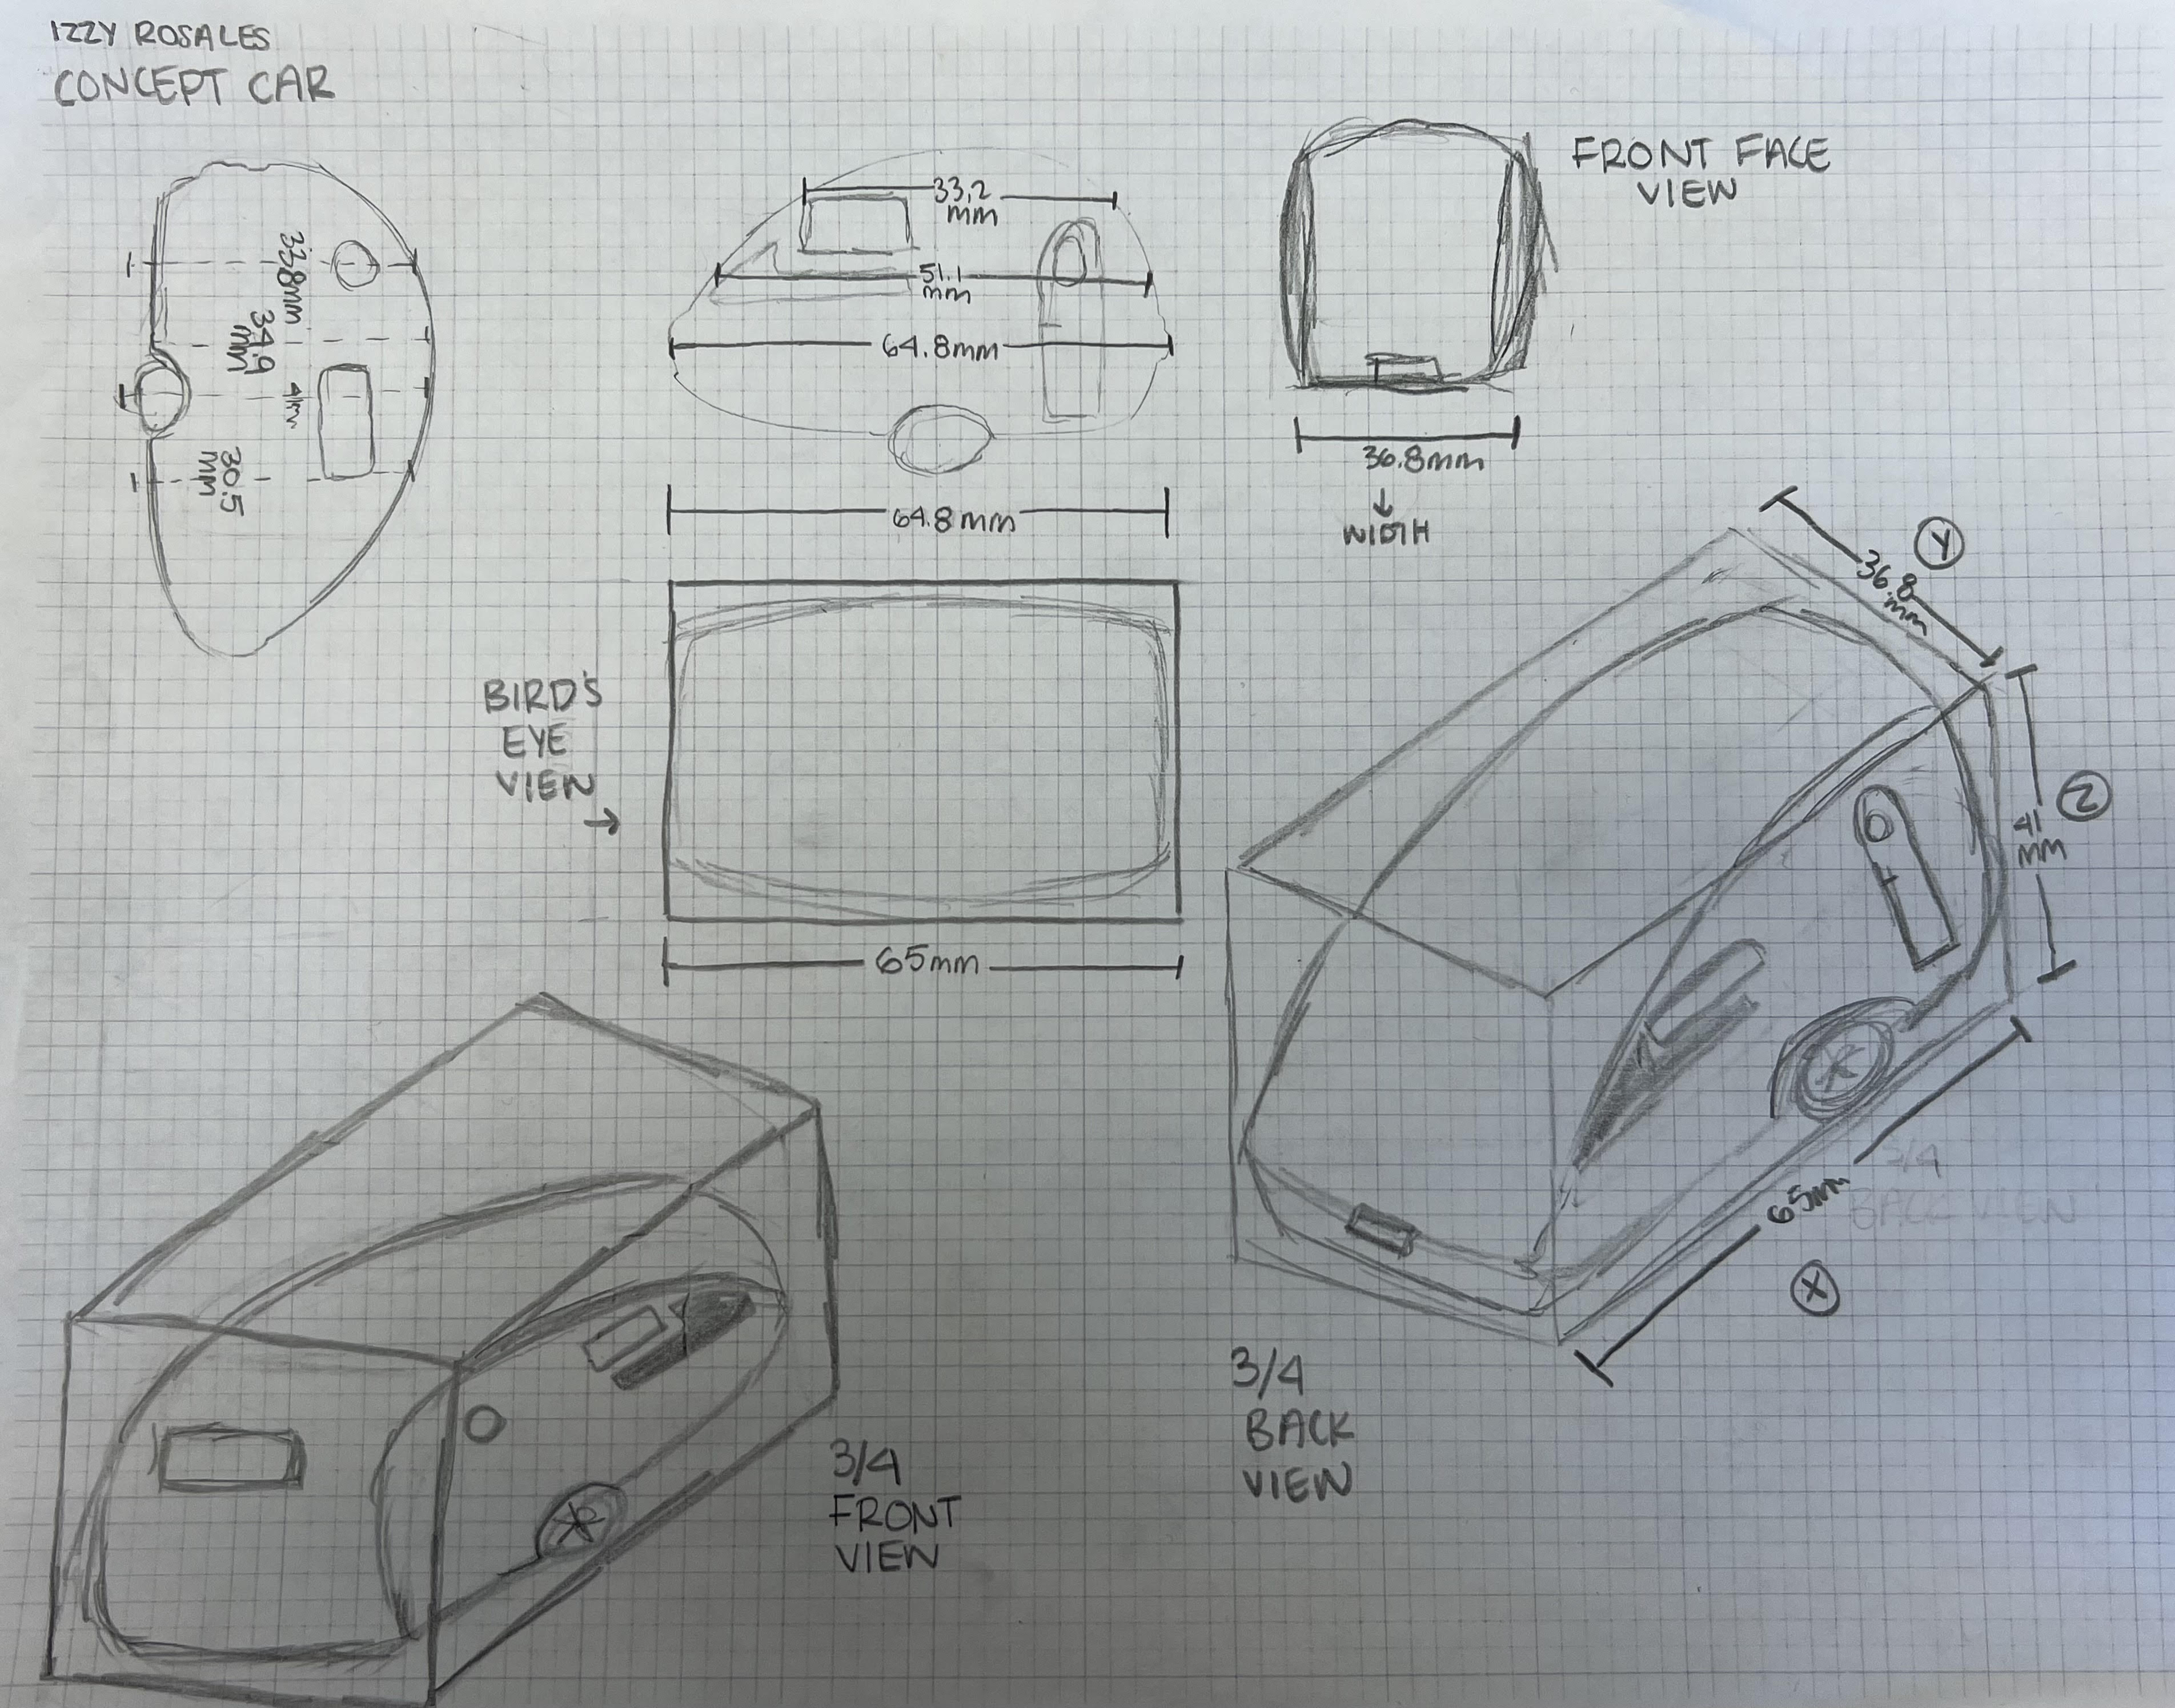 IZZY ROSALES
CONCEPT CAR
33.8mm
34.9
mm
41mm
30.5
mm
33.2
mm
51.1
mm
64.8mm
64.8mm
FRONT FACE
VIEW
36.8mm
↓
WIDTH
BIRD'S
EYE
VIEW
→
65mm
Y
36.8
mm
Z
41
mm
3/4
BACK VIEW
65mm
X
3/4
BACK
VIEW
3/4
FRONT
VIEW